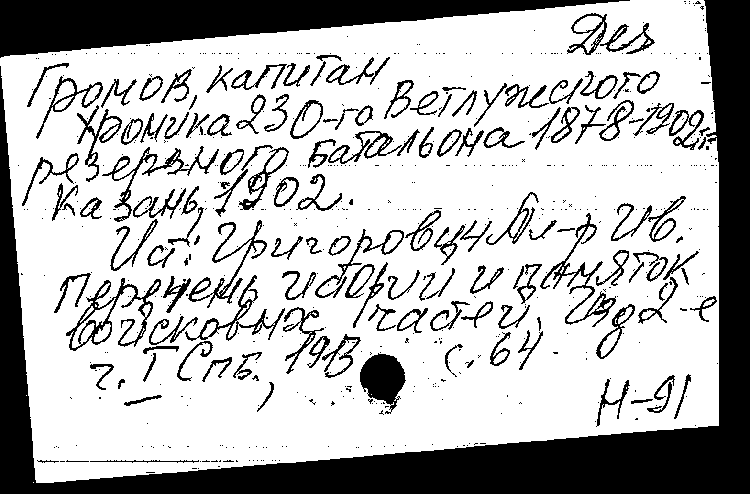 Дез
Громов, капитан
Хроника 230-го Ветлужского
резервного батальона 1878-1902гг.
Казань, 1902.
Ист: Григорович Ал-р Ив.
Перечень историй и памяток
войсковых частей, Изд 2-е
ч. I Спб., 1913 с. 64.
Н-91